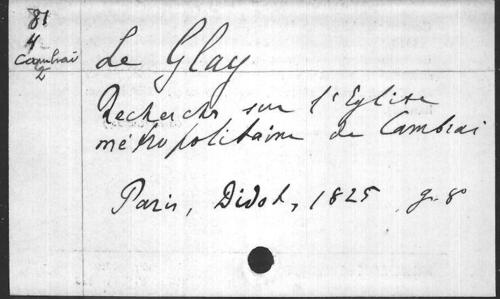 81
4
Cambrai
2
Le Glay
Recherches sur l'Eglise
métropolitaine de Cambrai
Paris, Didot, 1825 gr. 8°